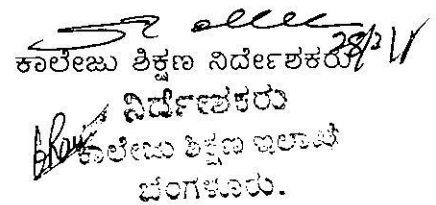 ಕಾಲೇಜು ಶಿಕ್ಷಣ ನಿರ್ದೇಶಕರು
ನಿರ್ದೇಶಕರು
ಕಾಲೇಜು ಶಿಕ್ಷಣ ಇಲಾಖೆ
ಬೆಂಗಳೂರು.